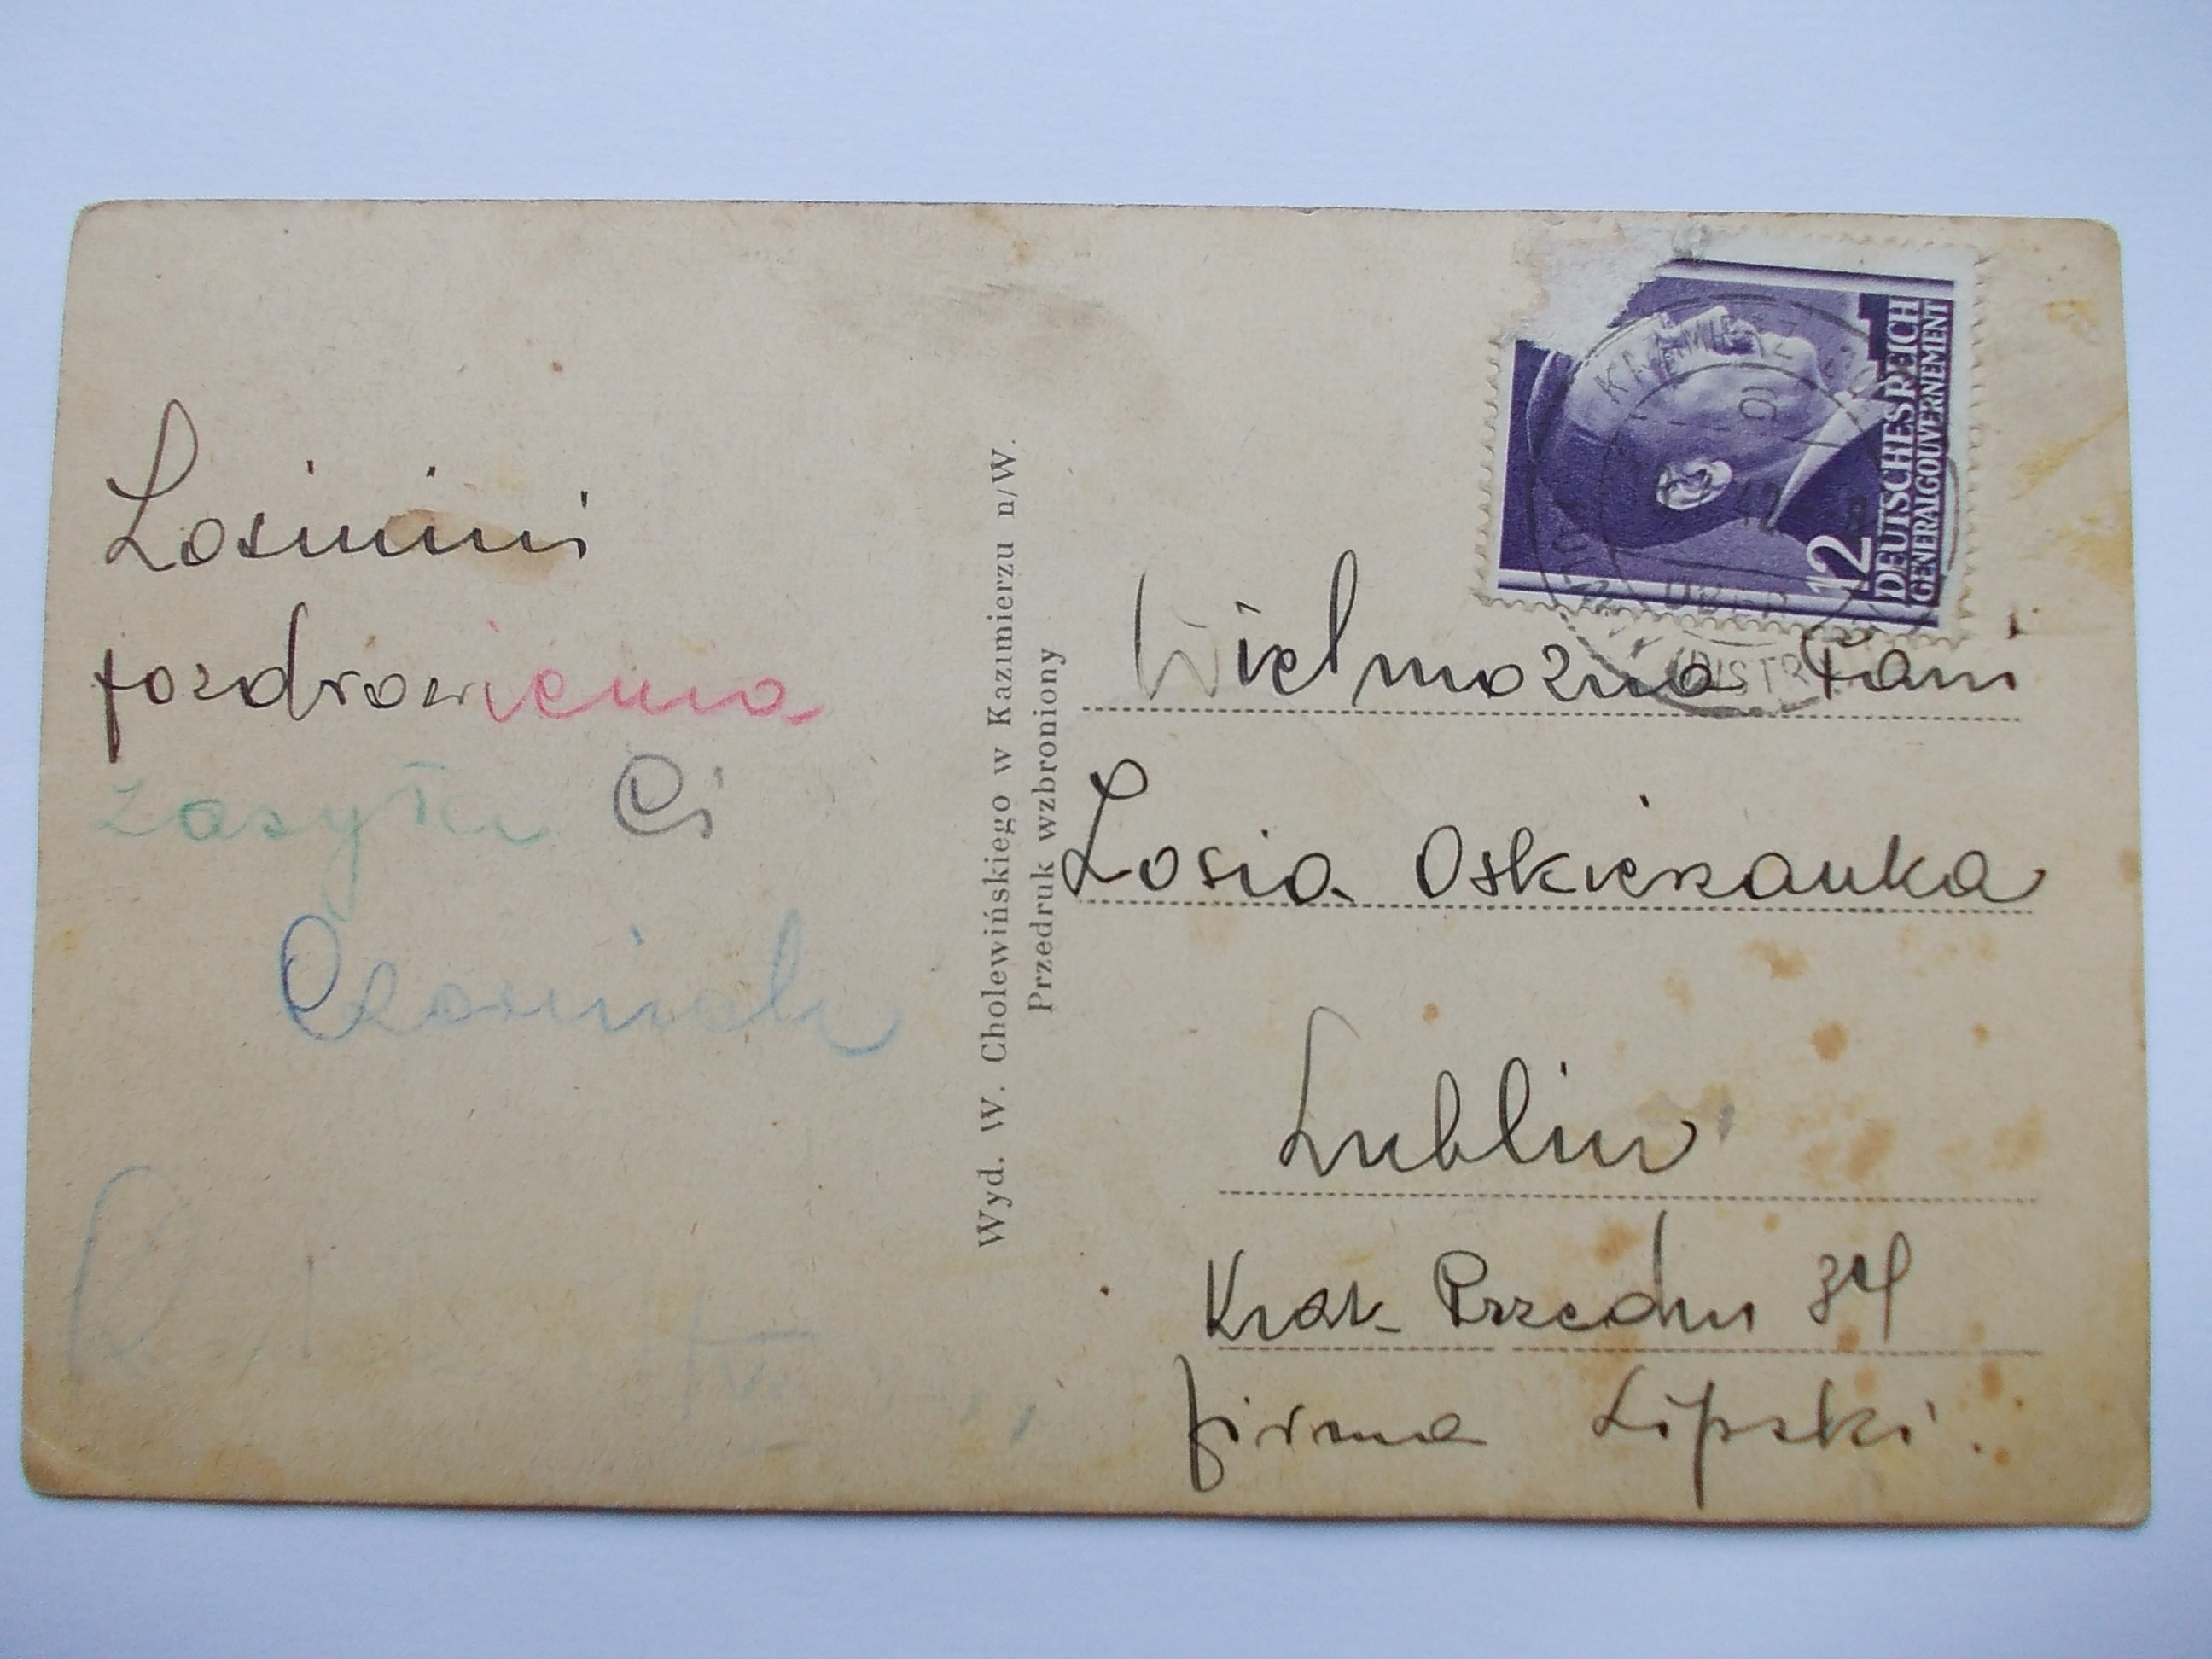 Losiuni
pozdrowienia
zasyła Ci
Wyd. W. Cholewińskiego w Kazimierzu n/W.
Przedruk wzbroniony
12
DEUTSCHES REICH
GENERALGOUVERNEMENT
Wielmożna Pani
Losia Oskierzanka
Lublin
Krak Przedm 34
firma Lipski.